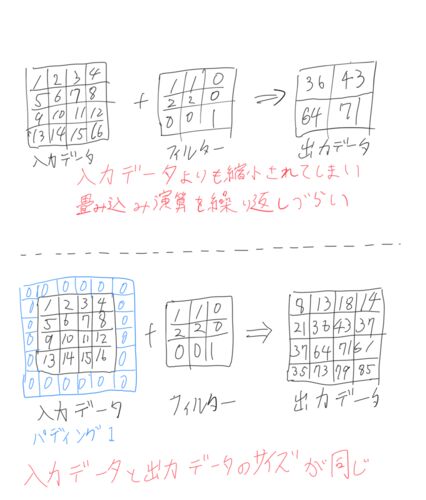 1 2 3 4
5 6 7 8
9 10 11 12
13 14 15 16
+
1 1 0
2 2 0
0 0 1
⇒
36 43
64 71
入力データ
フィルター
出力データ
入力データよりも縮小されてしまい
畳み込み演算を繰り返しづらい
0 0 0 0 0 0
0 1 2 3 4 0
0 5 6 7 8 0
0 9 10 11 12 0
0 13 14 15 16 0
0 0 0 0 0 0
+
1 1 0
2 2 0
0 0 1
⇒
8 13 18 14
21 36 43 37
37 64 71 61
35 73 79 85
入力データ
パディング1
フィルター
出力データ
入力データと出力データのサイズが同じ